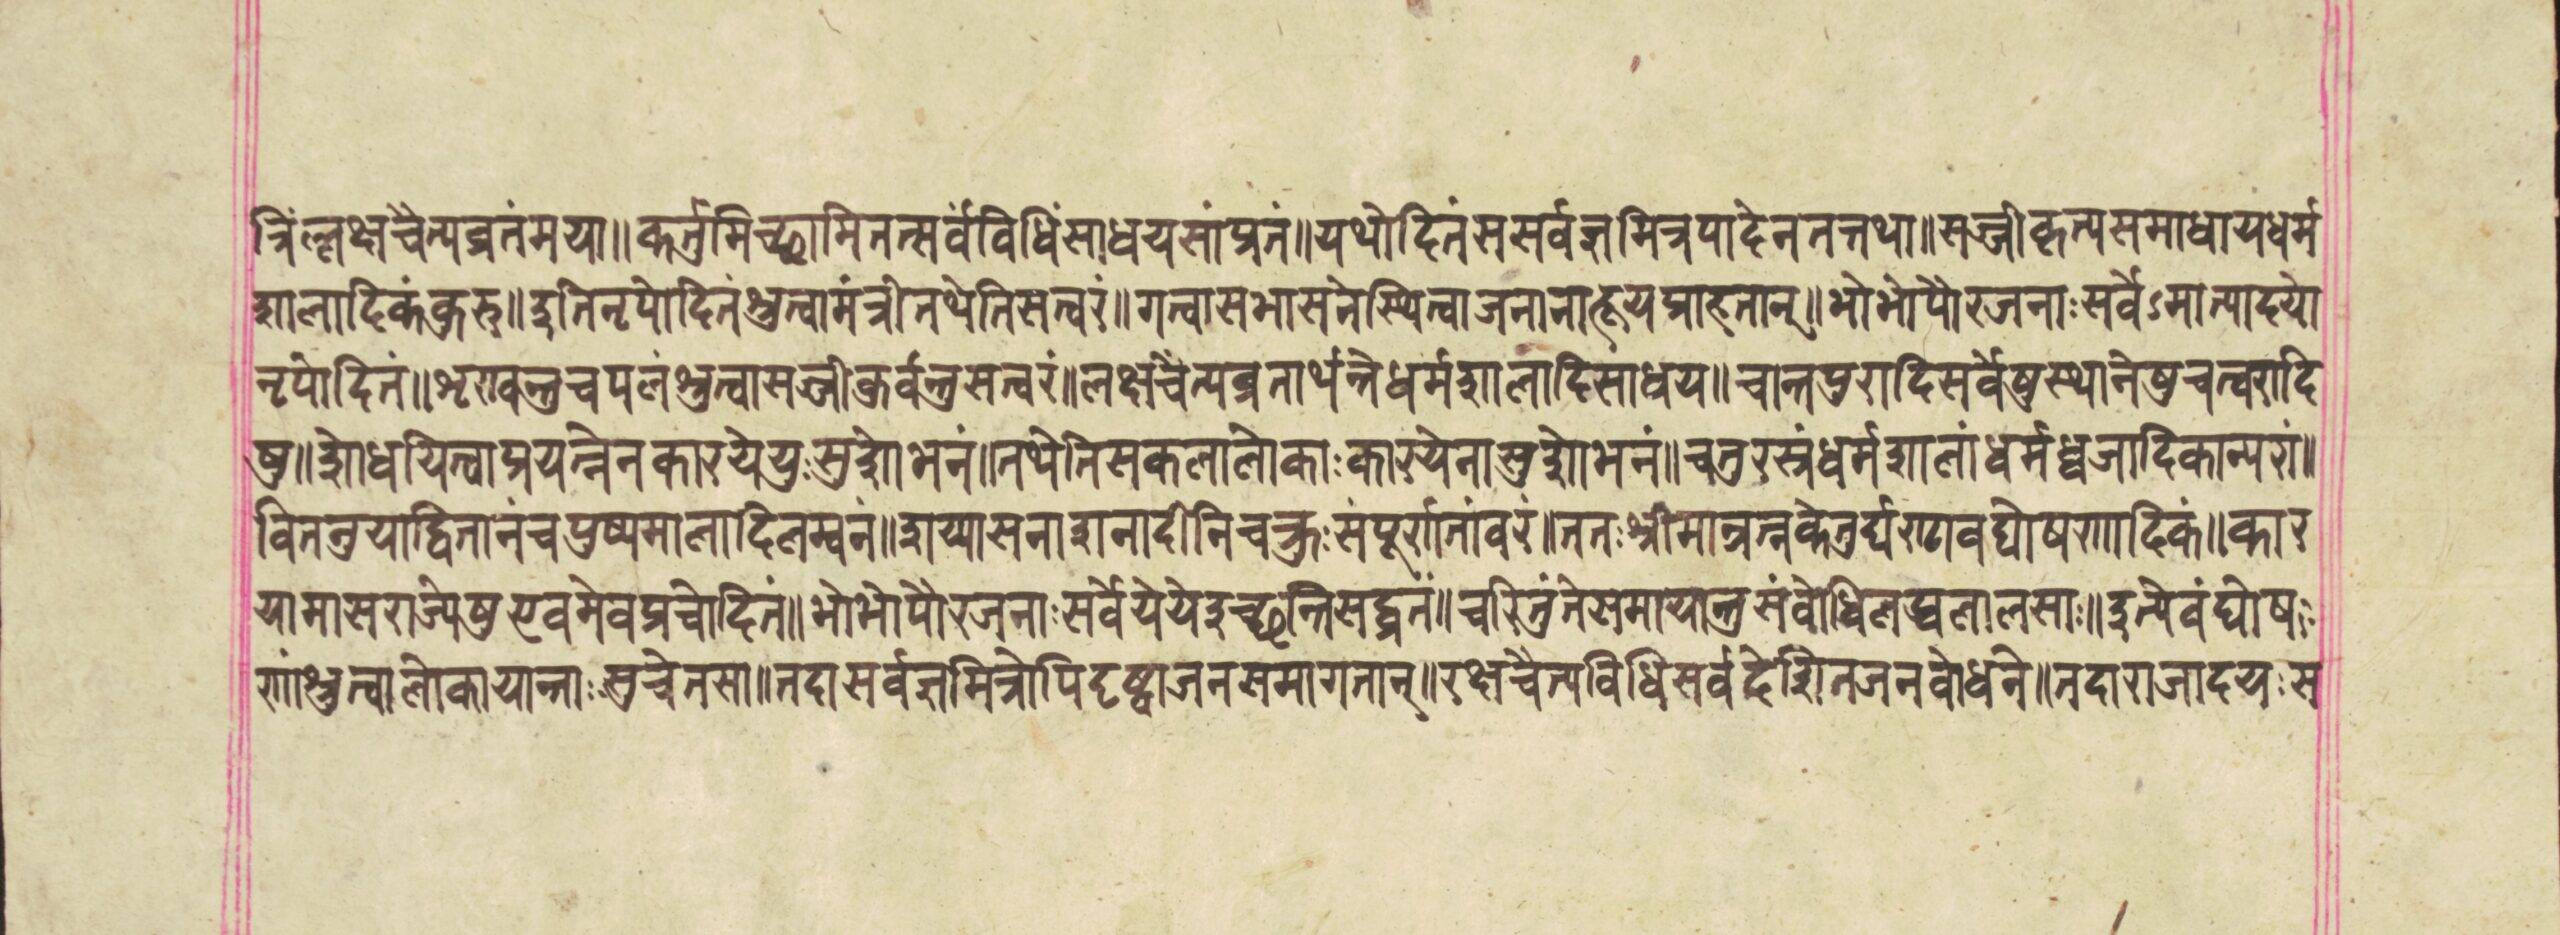 त्रिंल्लक्षचैत्यव्रतंमया॥कर्तुमिच्छामितत्सर्वंविधिंसाधयसांप्रतं॥यथोदितंससर्वज्ञमित्रपादेनतत्तथा॥सज्जीकृत्यसमाधायधर्म
शालादिकंकुरु॥इतिनृपोदितंश्रुत्वामंत्रीतथेतिसत्वरं॥गत्वासभासनेस्थित्वाजनानाहूयप्राहतान्॥भोभोपौरजनाःसर्वेऽमात्यादयो
नृपोदितं॥शृण्वन्तुचपलंश्रुत्वासज्जीकुर्वन्तुसत्वरं॥लक्षचैत्यव्रतार्थन्तेधर्मशालादिसाधय॥चान्तपुरादिसर्वेषुस्थानेषुचत्वरादि
षु॥शोधयित्वाप्रयत्नेनकारयेयुःसुशोभनं॥तथेतिसकलालोकाःकारयेतासुशोभनं॥चतुरस्त्रंधर्मशालांधर्मध्वजादिकान्परां॥
वितनुयाद्वितानंचपुष्पमालादिलम्वनं॥शय्यासनाशनादीनिचक्रुःसंपूर्णतांवरं॥ततःश्रीमान्रत्नकेतुर्घण्टावघोषणादिकं॥कार
यामासराज्येषुएवमेवप्रचोदितं॥भोभोपौरजनाःसर्वेयेयेइच्छन्तिसद्व्रतं॥चरितुंतेसमायान्तुसंवोधिलब्धलालसाः॥इत्येवंघोष
णांश्रुत्वालोकायान्ताःसुचेतसा॥तदासर्वज्ञमित्रोपिदृष्ट्वाजनसमागतान्॥रक्षचैत्यविधिसर्वदेशितजनवोधने॥तदाराजादयःस